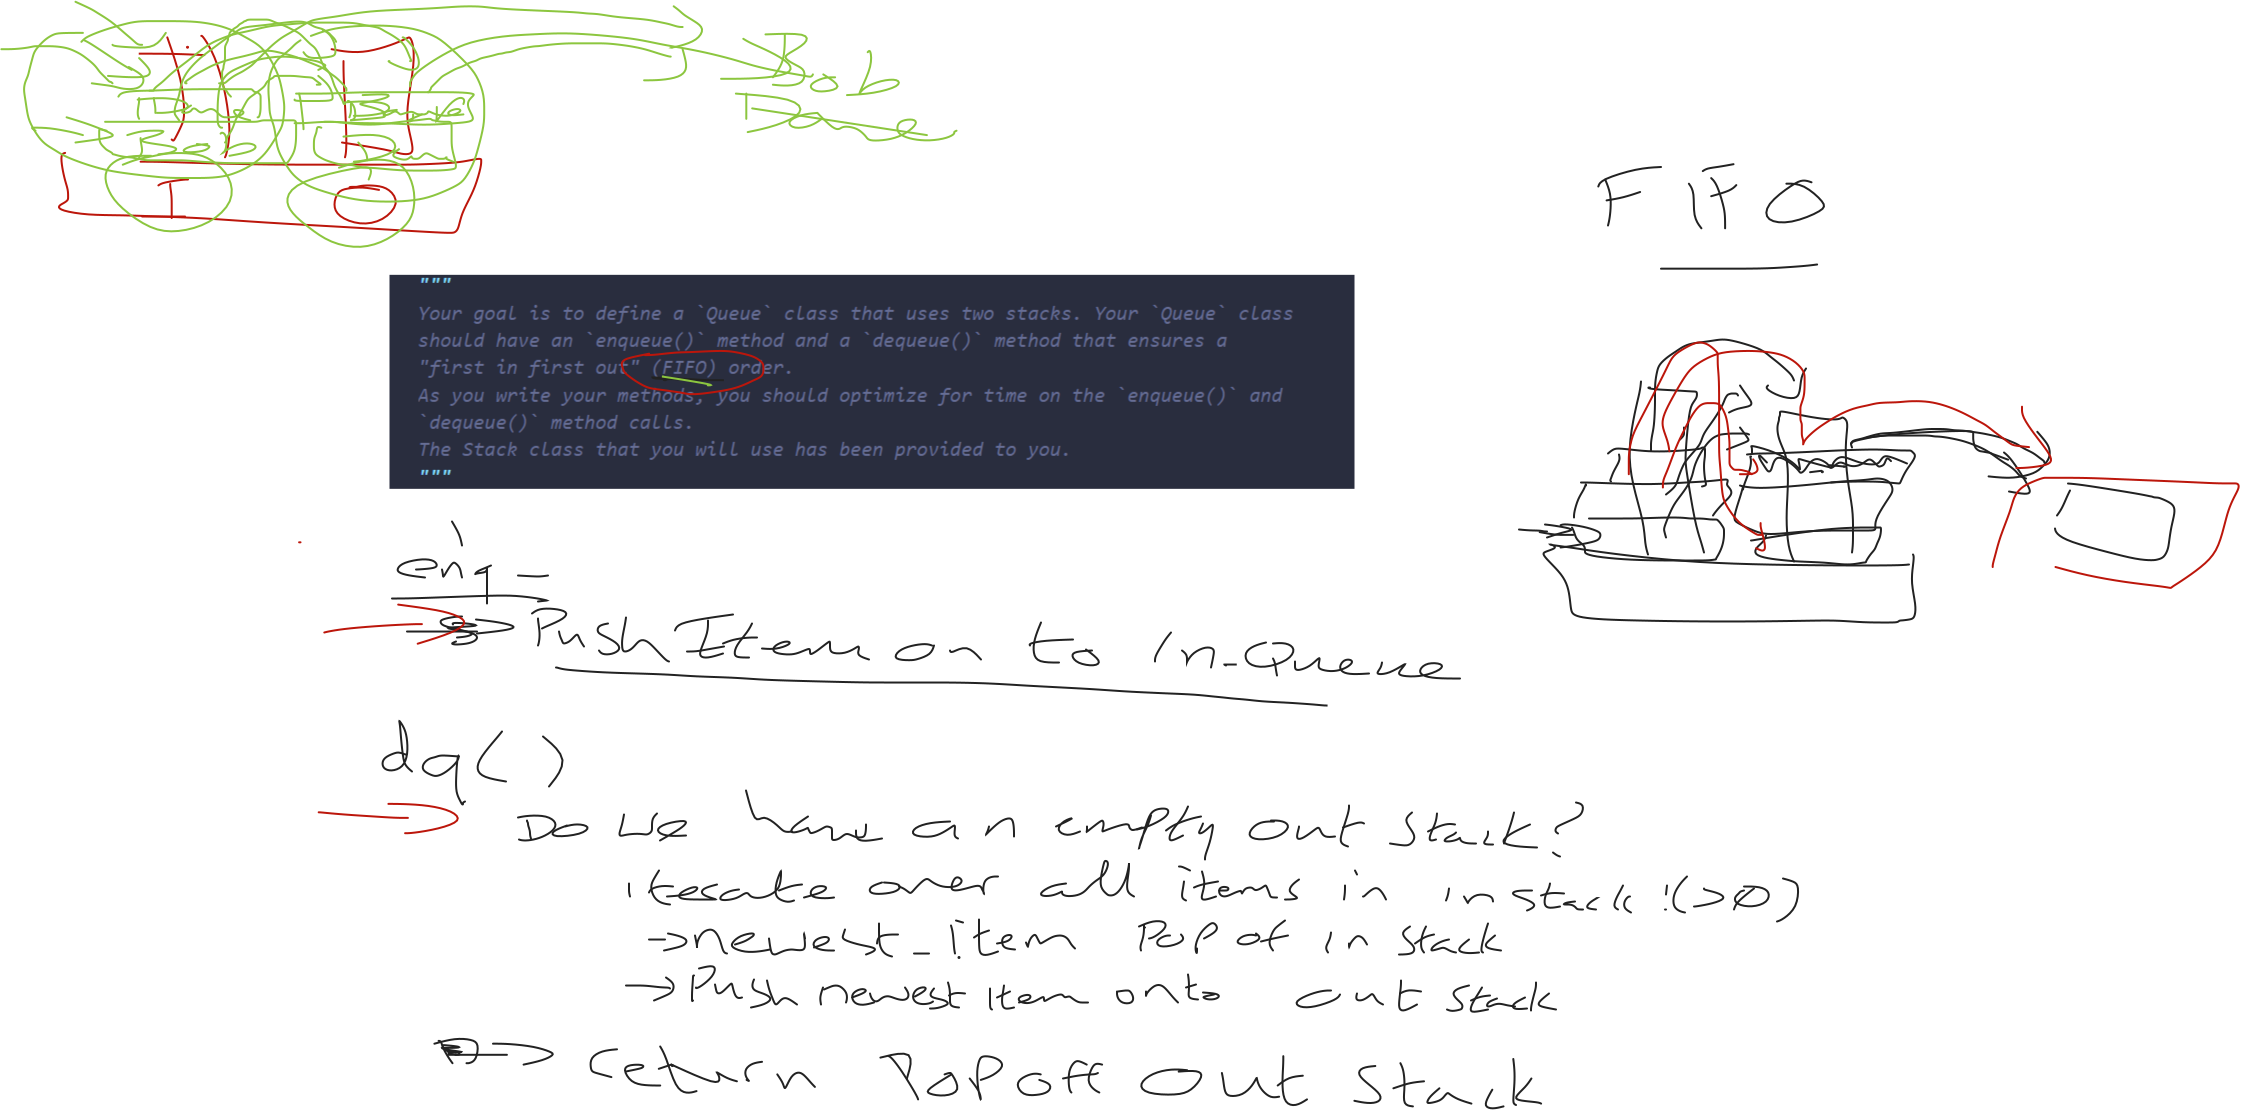 Bob
Dave
Dave
Bob
I
O
FIFO
"""
Your goal is to define a `Queue` class that uses two stacks. Your `Queue` class
should have an `enqueue()` method and a `dequeue()` method that ensures a
"first in first out" (FIFO) order.
As you write your methods, you should optimize for time on the `enqueue()` and
`dequeue()` method calls.
The Stack class that you will use has been provided to you.
"""
enq =
Push Item on to In-Queue
dq()
Do we have an empty out stack?
iterate over all items in in stack !(>0)
→newest_item Pop of in stack
→Push newest item onto out stack
return Pop off Out Stack